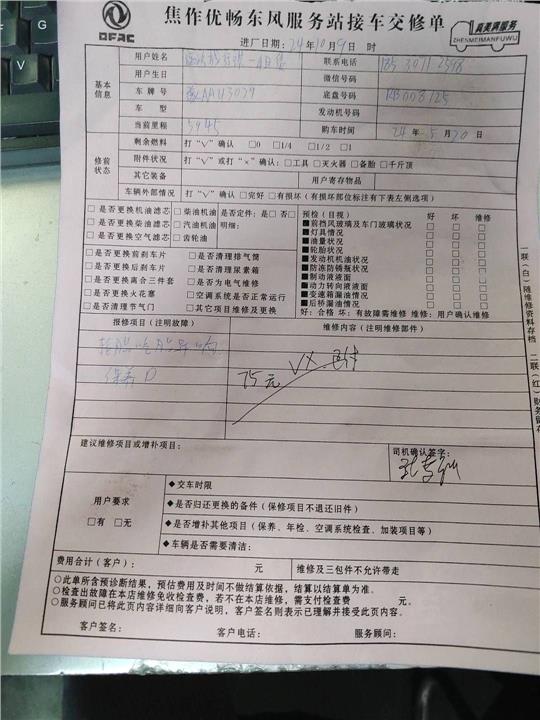 DFAC
焦作优畅东风服务站接车交修单
真美满服务
ZHENMEIMANFUWU
进厂日期：24年10月9日 时
基本信息
用户姓名
联系电话
用户生日
微信号码
车牌号
底盘号码
车型
发动机号码
当前里程 5945
购车时间 24年5月20日
修前状态
剩余燃料 打“√”确认 □0 □1/4 □1/2 □1
附件状况 打“√”或打“×”确认：□工具 □灭火器 □备胎 □千斤顶
其它装备
用户寄存物品
车辆外部情况 打“√”确认 □完好 □有损坏（有损坏部位标注有下表左侧选项）
□是否更换机油滤芯 □柴油机油 是否定件：是□ 否□
□是否更换柴油滤芯 □汽油机油 明细：
□是否更换空气滤芯 □齿轮油
□是否更换前刹车片 □是否清理排气筒
□是否更换后刹车片 □是否清理尿素箱
□是否更换离合三件套 □是否为电气维修
□是否更换火花塞 □空调系统是否正常运行
□是否清理节气门 □其它项目维修及更换
预检（目视） 好 坏 维修
■前挡风玻璃及车门玻璃状况 □ □ □
■灯具情况 □ □ □
■油量状况 □ □ □
■轮胎状况 □ □ □
■发动机机油状况 □ □ □
■防冻防锈瓶状况 □ □ □
■制动液液面 □ □ □
■动力转向液液面 □ □ □
■变速箱漏油情况 □ □ □
■后桥漏油情况 □ □ □
好：合格 坏：有故障需维修 维修：用户确认维修
报修项目（注明故障）
维修内容（注明维修部件）
保养D
75元
建议维修项目或增补项目：
司机确认签字：
用户要求
□有 □无
◆交车时限
◆是否归还更换的备件（保修项目不退还旧件）
◆是否增补其他项目（保养、年检、空调系统检查、加装项目等）
◆车辆是否需要清洁：
费用合计（客户）： 元
维修及三包件不允许带走
○此单所含预诊断结果，预估费用及时间不做结算依据，结算以结算单为准。
○检查出故障在本店维修免收检查费，若不在本店维修，需支付检查费 元。
○服务顾问已将此页内容详细向客户说明，客户签名则表示已理解并接受此页内容。
客户签名： 客户电话： 服务顾问：
一联（白）随维修资料存档
二联（红）财务留存